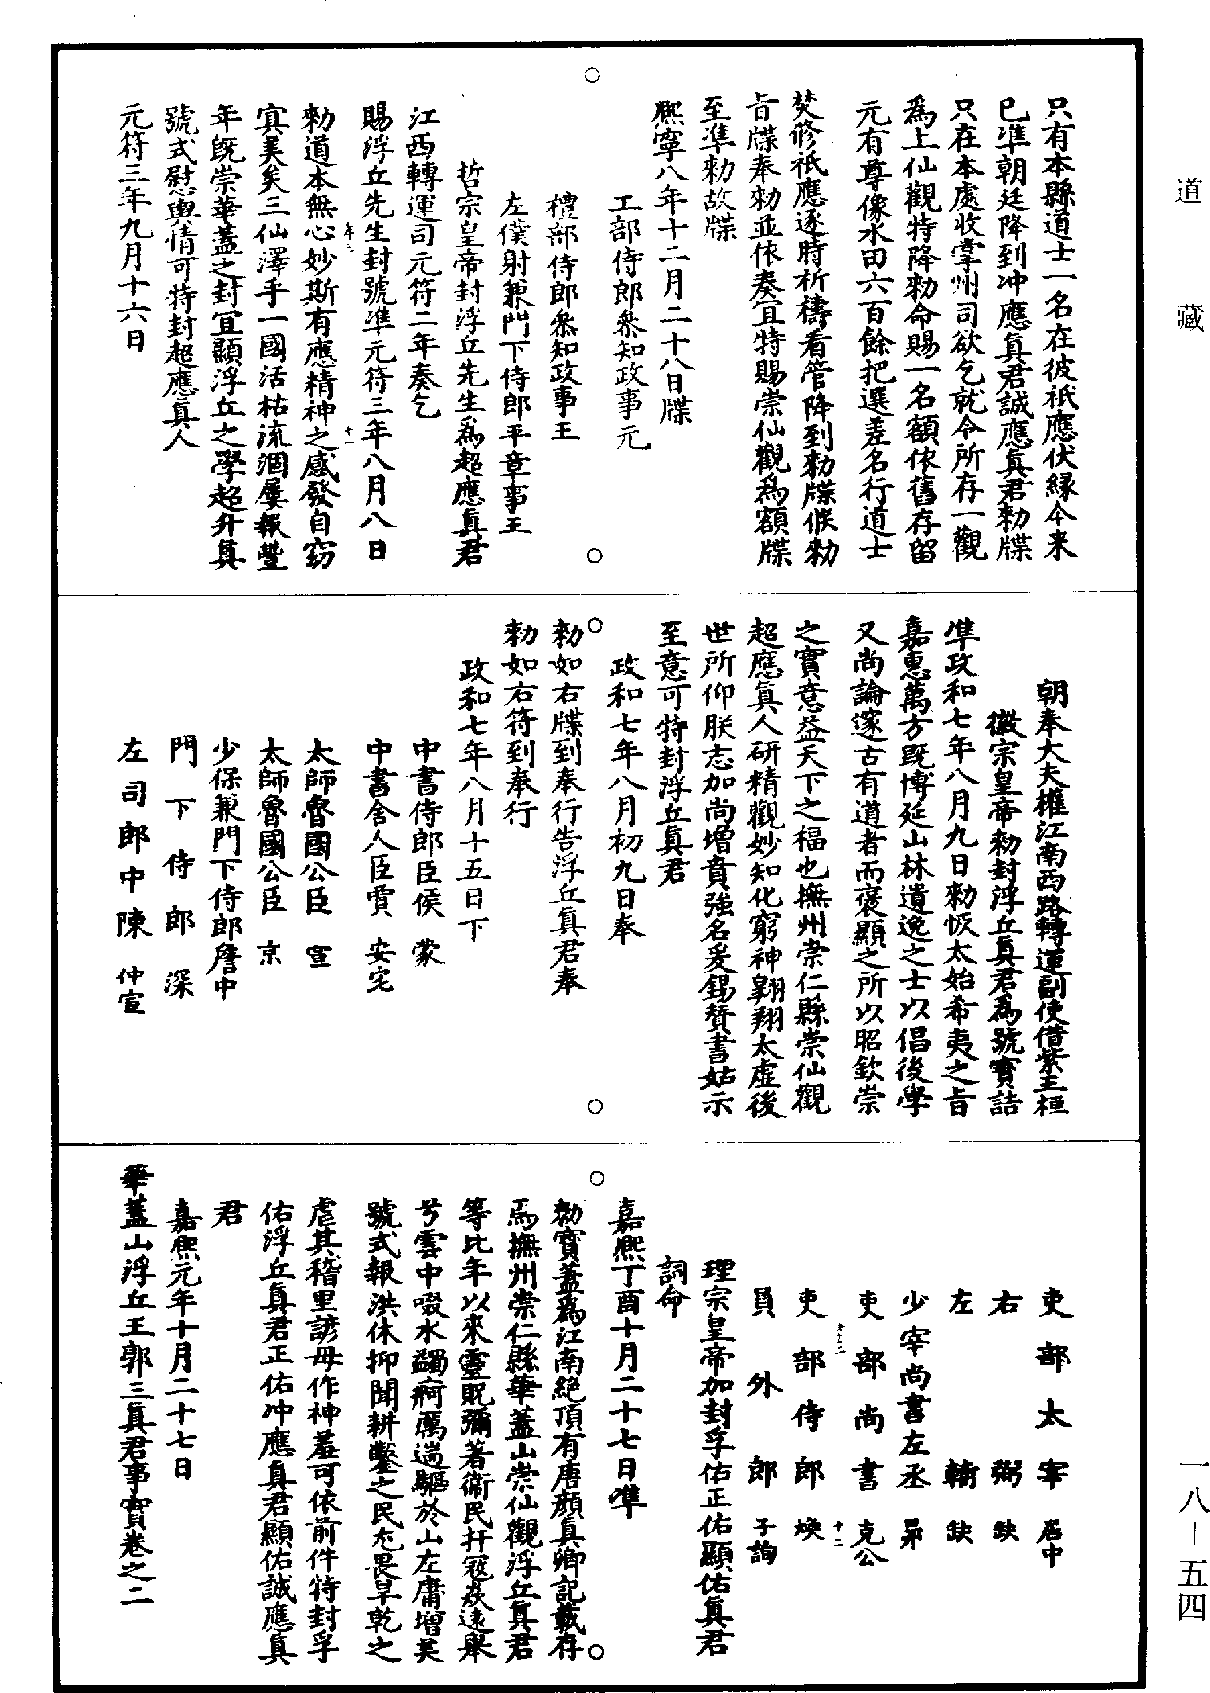 道藏
只有本縣道士一名在彼祇應伏緣今来
已准朝廷降到冲應真君誠應真君勑牒
只在本處收掌州司欲乞就令所存一觀
爲上仙觀特降勑命賜一名額依舊存留
元有尊像水田六百餘把選差名行道士
焚修祇應逐時祈禱看管降到勑牒候勑
旨牒奉勑並依奏宜特賜崇仙觀爲額牒
至準勑故牒
熈寧八年十二月二十八日牒
工部侍郎叅知政事元
禮部侍郎叅知政事王
左僕射兼門下侍郎平章事王
哲宗皇帝封浮丘先生爲超應真君
江西轉運司元符二年奏乞
賜浮丘先生封號準元符三年八月八日
勑道本無心妙斯有應精神之感發自窈
㝠美矣三仙澤乎一國活枯流涸屢報豐
年旣崇華蓋之封宜顯浮丘之學超升真
號式慰輿情可特封超應真人
元符三年九月十六日
朝奉大夫權江南西路轉運副使借紫王桓
徽宗皇帝勑封浮丘真君爲號實誥
準政和七年八月九日勑恢太始希夷之旨
嘉惠萬方旣博延山林遺逸之士以倡後學
又尚論邃古有道者而褒顯之所以昭欽崇
之實意益天下之福也撫州崇仁縣崇仙觀
超應真人研精觀妙知化窮神翱翔太虛後
世所仰朕志加尚增賁強名爰錫贊書姑示
至意可特封浮丘真君
政和七年八月初九日奉
勑如右牒到奉行告浮丘真君奉
勑如右符到奉行
政和七年八月十五日下
中書侍郎臣侯 蒙
中書舍人臣賈 安宅
太師魯國公臣 宣
太師魯國公臣 京
少保兼門下侍郎詹中
門下侍郎 深
左司郎中陳 仲宣
吏部太宰 居中
右弼 缺
左輔 缺
少宰尚書左丞 昂
吏部尚書 克公
十二
吏部侍郎 煥
員外郎 子詢
理宗皇帝加封孚佑正佑顯佑真君
詞命
嘉熈丁酉十月二十七日準
勑寶蓋爲江南絶頂有唐顏真卿記載存
焉撫州崇仁縣華蓋山崇仙觀浮丘真君
等比年以來靈貺彌著衞民扞寇猋遠舉
兮雲中啜水蠲痾厲遄驅於山左庸增美
號式報洪休抑聞耕鑿之民尤畏旱乾之
虐其稽里諺毋作神羞可依前件特封孚
佑浮丘真君正佑冲應真君顯佑誠應真
君
嘉熈元年十月二十七日
華蓋山浮丘王郭三真君事實卷之二
一八－五四